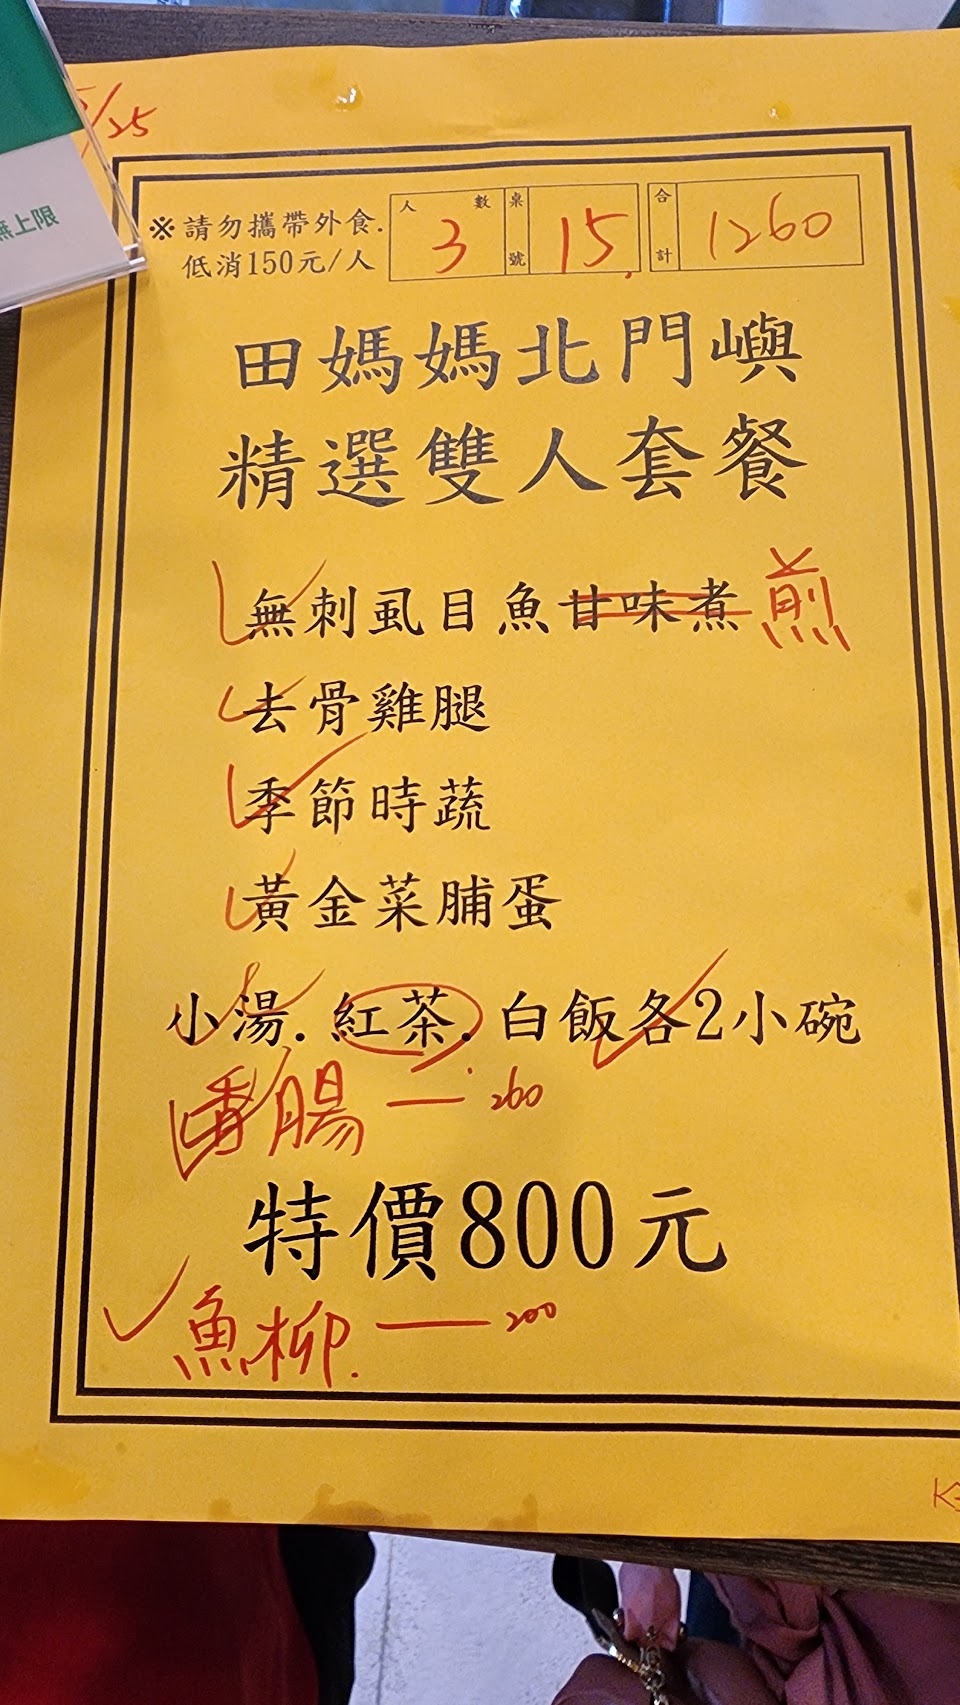 /25
無上限
※請勿攜帶外食.
低消150元/人
人數 3 桌號 15. 合計 1260
田媽媽北門嶼
精選雙人套餐
無刺虱目魚甘味煮 煎
去骨雞腿
季節時蔬
黃金菜脯蛋
小湯.紅茶.白飯各2小碗
香腸 — 260
特價800元
魚柳. — 200